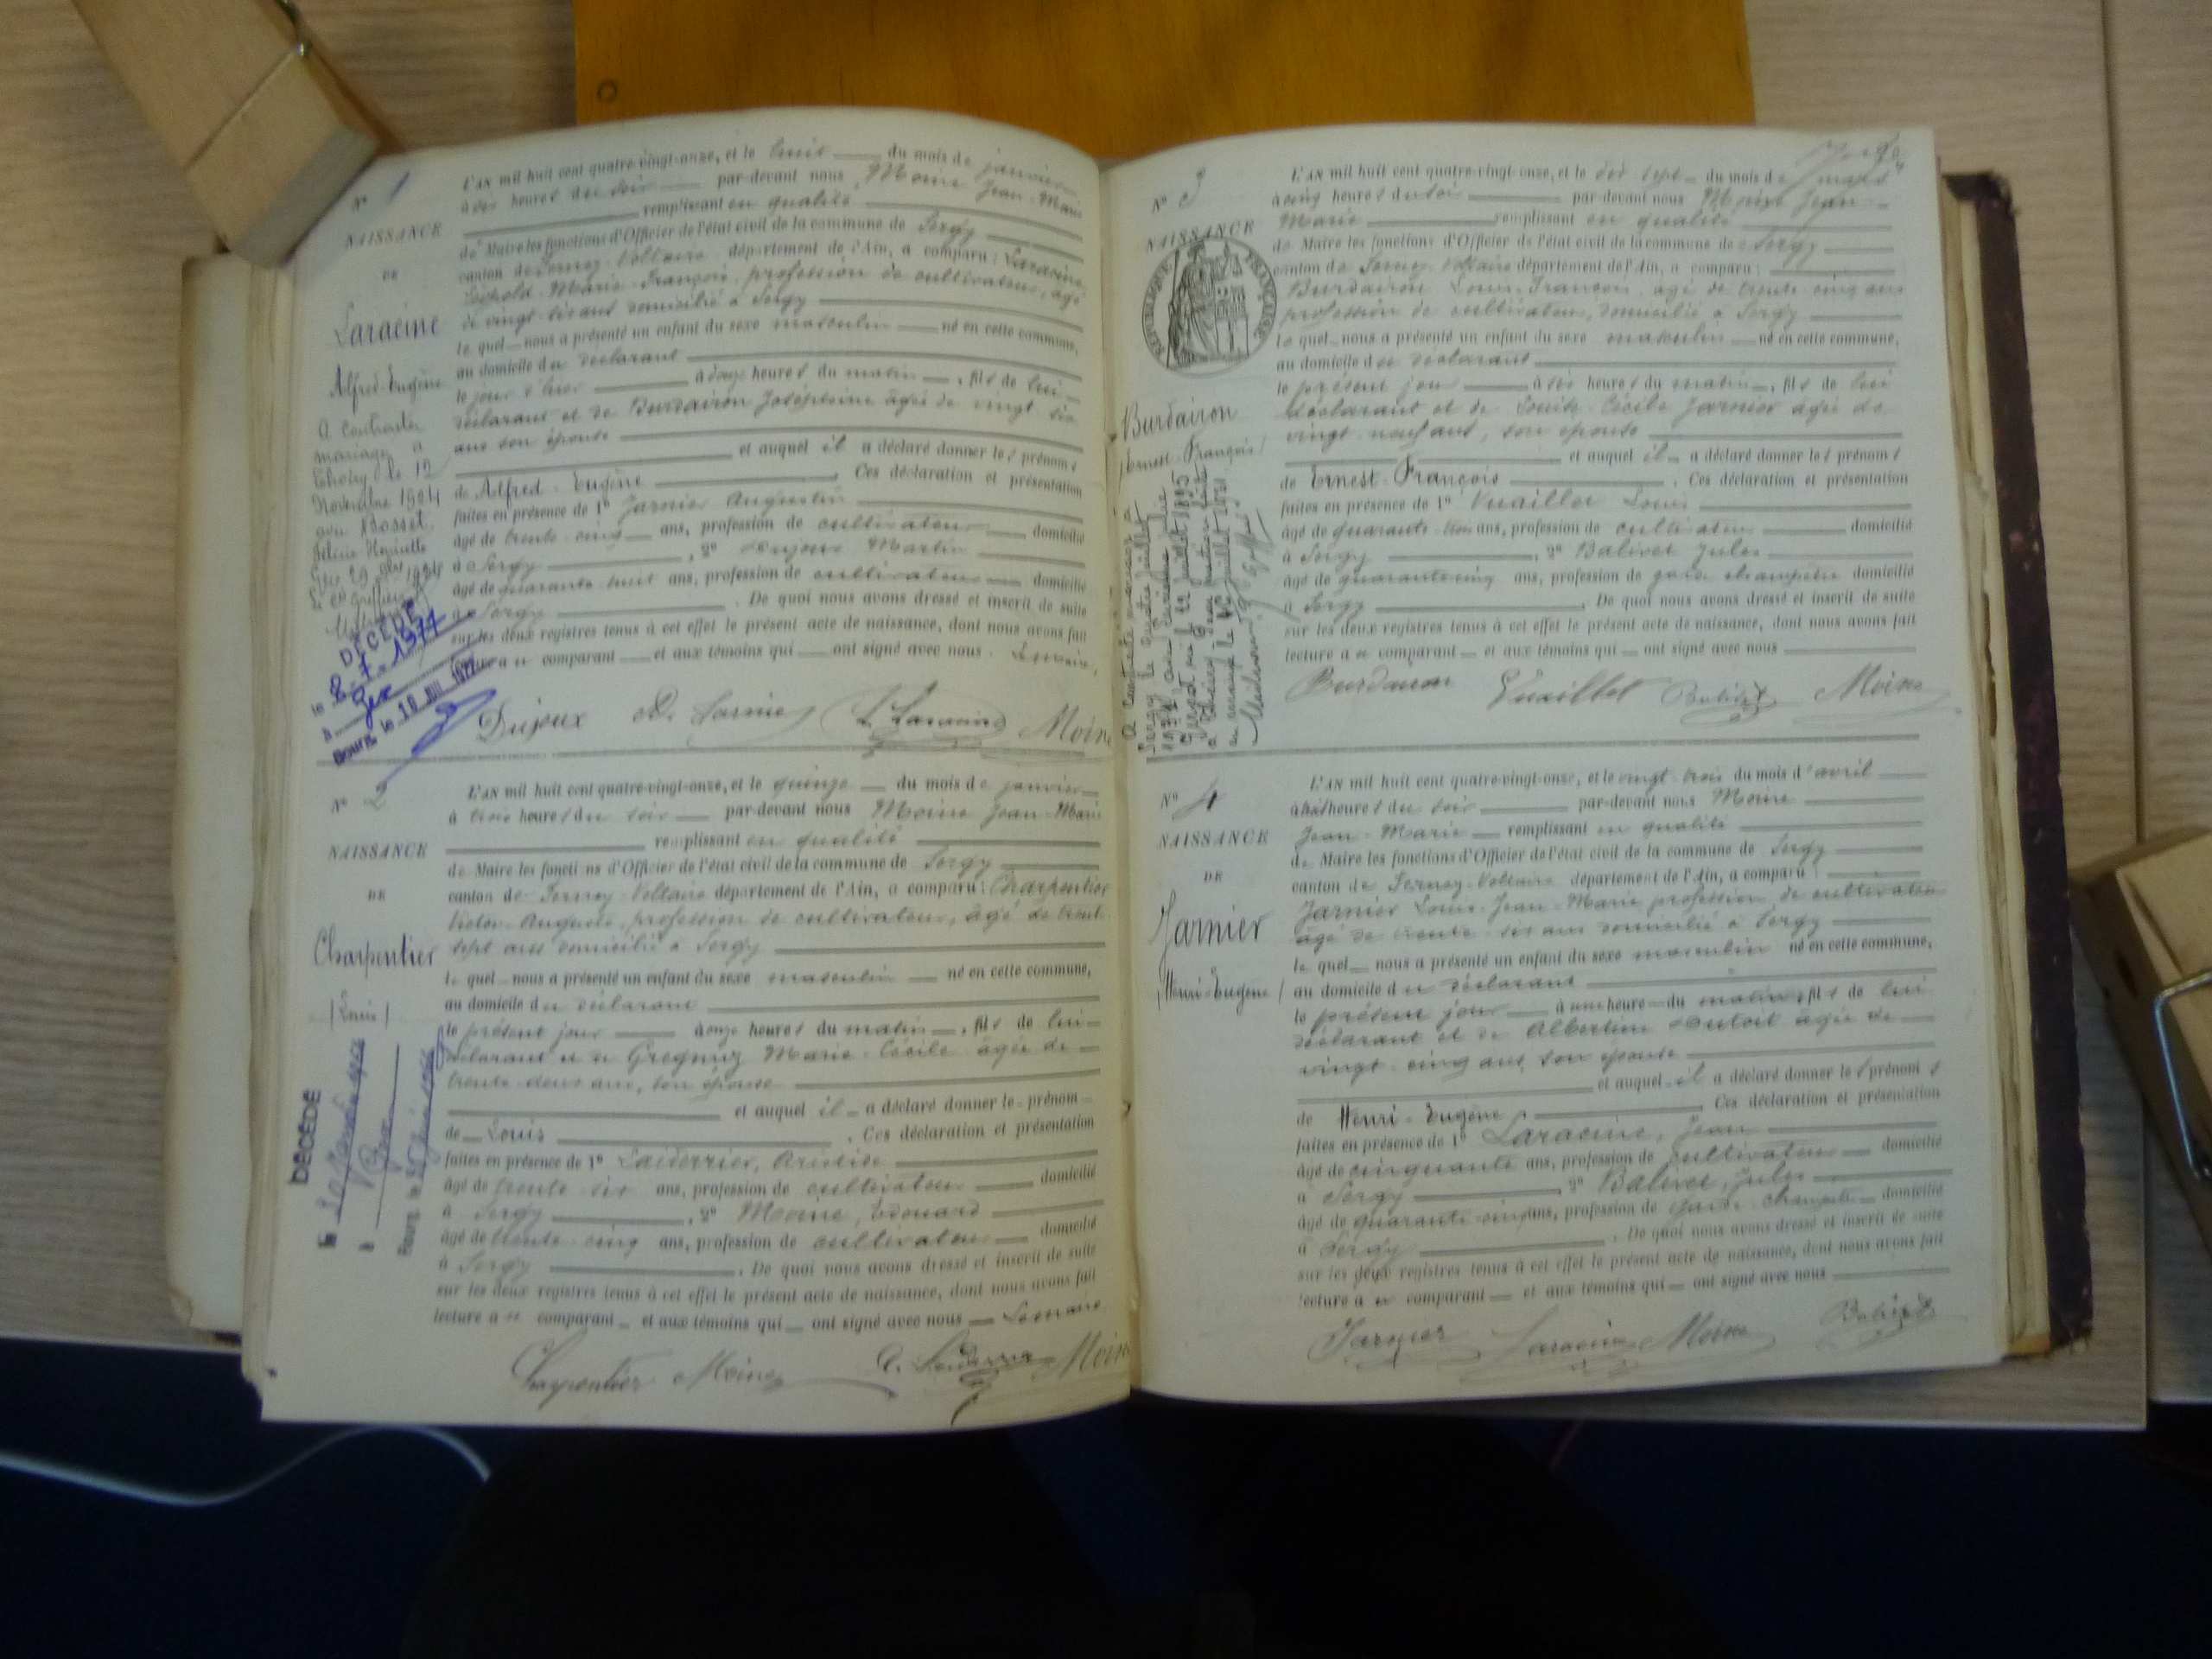 N° 1
NAISSANCE
DE
Laracine
Alfred-Eugène
A contracté
mariage à
Thoiry le 12
Novembre 1924
avec Rosset
Henriette
DÉCÉDÉ
le 8-7-1971
à Gex
Bourg, le
L'AN mil huit cent quatre-vingt-onze, et le huit du mois de janvier
à six heures du soir par-devant nous Moine Jean-Marie
remplissant en qualité
de Maire les fonctions d'Officier de l'état civil de la commune de Sergy
canton de Ferney-Voltaire département de l'Ain, a comparu: Laracine
Léopold-Marie-François, profession de cultivateur, âgé
de vingt-six ans domicilié à Sergy
le quel nous a présenté un enfant du sexe masculin né en cette commune,
au domicile du déclarant
le jour d'hier à onze heures du matin, fils de lui
déclarant et de Burdairon Joséphine âgée de vingt six
ans son épouse
et auquel il a déclaré donner les prénoms
de Alfred-Eugène. Ces déclaration et présentation
faites en présence de 1° Jarnier Augustin
âgé de trente-cinq ans, profession de cultivateur domicilié
à Sergy, 2° Dujoux Martin
âgé de quarante huit ans, profession de cultivateur domicilié
à Sergy. De quoi nous avons dressé et inscrit de suite
sur les deux registres tenus à cet effet le présent acte de naissance, dont nous avons fait
lecture au comparant et aux témoins qui ont signé avec nous. Le maire,
Dujoux Jarnier L Laracine Moine
N° 2
NAISSANCE
DE
Charpentier
(Louis)
DÉCÉDÉ
le
à Gex
Bourg, le
L'AN mil huit cent quatre-vingt-onze, et le quinze du mois de janvier
à trois heures du soir par-devant nous Moine Jean-Marie
remplissant en qualité
de Maire les fonctions d'Officier de l'état civil de la commune de Sergy
canton de Ferney-Voltaire département de l'Ain, a comparu: Charpentier
Victor-Auguste, profession de cultivateur, âgé de trente
sept ans domicilié à Sergy
le quel nous a présenté un enfant du sexe masculin né en cette commune,
au domicile du déclarant
le présent jour à onze heures du matin, fils de lui
déclarant et de Marie-Cécile âgée de
trente-deux ans, son épouse
et auquel il a déclaré donner le prénom
de Louis. Ces déclaration et présentation
faites en présence de 1° Laiderrier, Aristide
âgé de trente six ans, profession de cultivateur domicilié
à Sergy, 2° Moine, Edouard
âgé de trente-cinq ans, profession de cultivateur domicilié
à Sergy. De quoi nous avons dressé et inscrit de suite
sur les deux registres tenus à cet effet le présent acte de naissance, dont nous avons fait
lecture au comparant et aux témoins qui ont signé avec nous Le maire
Charpentier Moine Moine
N° 3
NAISSANCE
RÉPUBLIQUE FRANÇAISE
Burdairon
(Ernest-François)
L'AN mil huit cent quatre-vingt-onze, et le dix sept du mois de mars
à cinq heures du soir par-devant nous Moine Jean-
Marie remplissant en qualité
de Maire les fonctions d'Officier de l'état civil de la commune de Sergy
canton de Ferney-Voltaire département de l'Ain, a comparu:
Burdairon Louis-François âgé de trente-cinq ans
profession de cultivateur, domicilié à Sergy
le quel nous a présenté un enfant du sexe masculin né en cette commune,
au domicile du déclarant
le présent jour à six heures du matin, fils de lui
déclarant et de Louise-Cécile Jarnier âgée de
vingt-neuf ans, son épouse
et auquel il a déclaré donner les prénoms
de Ernest-François. Ces déclaration et présentation
faites en présence de 1° Vuaillet Louis
âgé de quarante-trois ans, profession de cultivateur domicilié
à Sergy, 2° Balivet Jules
âgé de quarante cinq ans, profession de garde champêtre domicilié
à Sergy. De quoi nous avons dressé et inscrit de suite
sur les deux registres tenus à cet effet le présent acte de naissance, dont nous avons fait
lecture au comparant et aux témoins qui ont signé avec nous
Burdairon Vuaillet Balivet Moine
N° 4
NAISSANCE
DE
Jarnier
(Henri-Eugène)
L'AN mil huit cent quatre-vingt-onze, et le vingt-trois du mois d'avril
à heures du soir par-devant nous Moine
Jean-Marie remplissant en qualité
de Maire les fonctions d'Officier de l'état civil de la commune de Sergy
canton de Ferney-Voltaire département de l'Ain, a comparu
Jarnier Louis-Jean-Marie profession de cultivateur
âgé de trente-six ans domicilié à Sergy
le quel nous a présenté un enfant du sexe masculin né en cette commune,
au domicile du déclarant
le présent jour à une heure du matin, fils de lui
déclarant et de Albertine Dutoit âgée de
vingt-cinq ans, son épouse
et auquel il a déclaré donner les prénoms
de Henri-Eugène. Ces déclaration et présentation
faites en présence de 1° Laracine, Jean
âgé de cinquante ans, profession de cultivateur domicilié
à Sergy, 2° Balivet, Jules
âgé de quarante-cinq ans, profession de garde-champêtre domicilié
à Sergy. De quoi nous avons dressé et inscrit de suite
sur les deux registres tenus à cet effet le présent acte de naissance, dont nous avons fait
lecture au comparant et aux témoins qui ont signé avec nous
Jarnier Laracine Moine Balivet